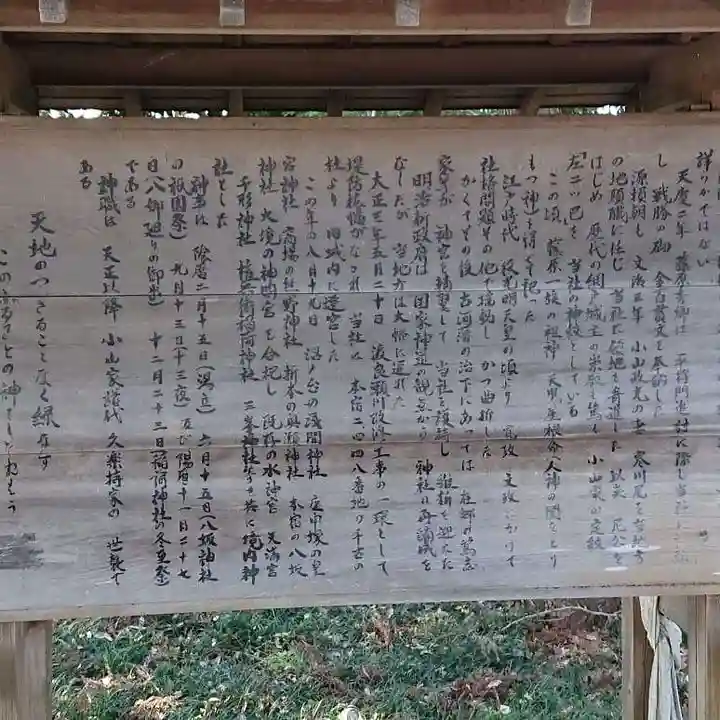 詳らかではない
天慶二年 藤原秀郷は 平将門追討に際し当社に
し 戦勝の砌 金百貫文を奉納した
源頼朝も 文治三年 小山政光の妻 寒川尼を当地方
の地頭職に任じ 当社に領地を寄進した 以来 尼公を
はじめ 歴代の網戸城主の崇敬も篤く 小山家の定紋
左二ツ巴を 当社の神紋としている
この頃 藤原一族の祖神 天児屋根命(人神の間をとり
もつ神)を併せ祀った
江戸時代 後光明天皇の頃より 寛政 文政にかけて
社格問題その他で揺動し かつ曲折した
かくてその後 古河藩の治下にあっては 社郷の篤志
家等が 神宮を嘱望して 当社を護持し 維新を迎えた
明治新政府は 国家神道の観点から 神社の再編成を
したが 当地方は大幅に遅れた
大正三年五月二十日 渡良瀬川改修工事の一環として
堤防拡幅がなされ 当社は 本宿二〇四八番地の千古の
社より 旧城内に遷宮した
この年の八月十九日 沼ノ台の浅間神社 庚申塚の星
宮神社 高場の熊野神社 新令の眞瀬神社 本宿の八坂
神社 大境の神明宮を合祀し 既存の水神宮 天満宮
千形神社 稲荷神社 三峯神社等と共に境内神
社とした
神事は 陰暦二月十五日 六月十五日(八坂神社
の祇園祭) 九月十三日(十三夜) 及び陽暦十一月二十七
日(八郷廻りの御出) 十二月二十三日(稲荷神社の冬至祭)
である
神職は 天正以降 小山家様代 久楽持家の 世襲で
ある
天地のつゞきることなく緑なす